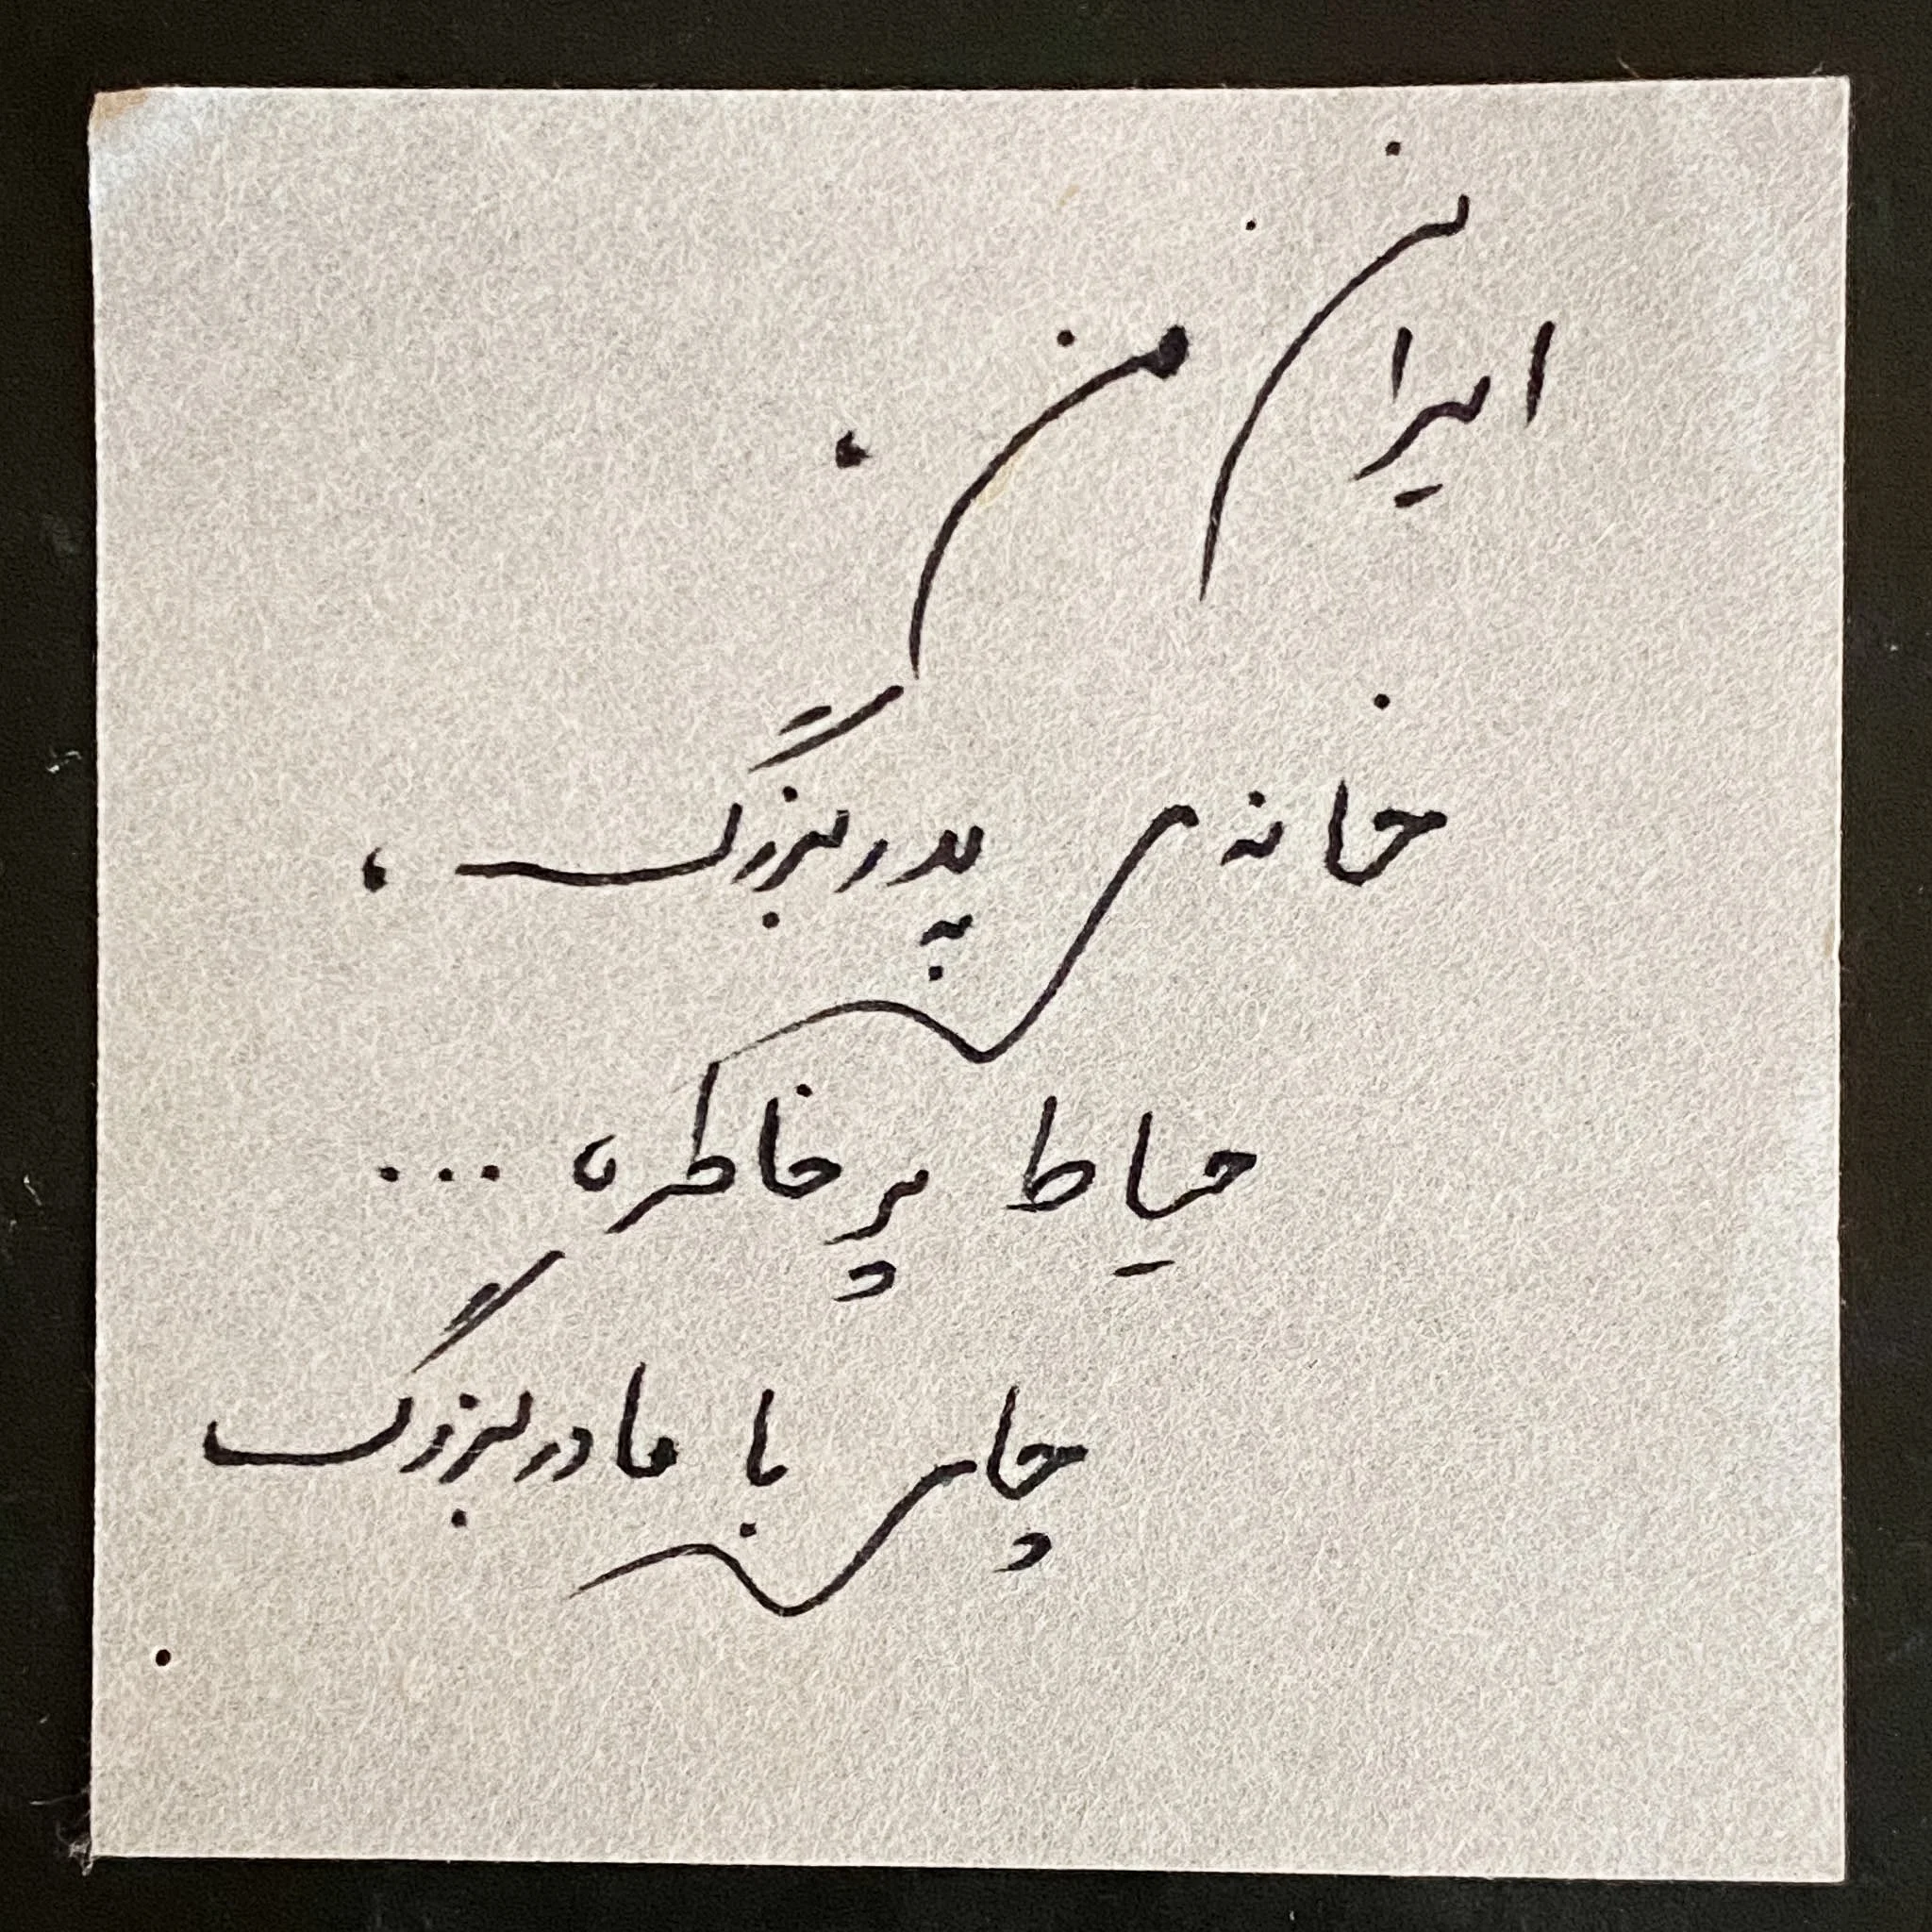 ایران من.
خانه‌ی پدربزرگ،
حیاط پر خاطره ...
چای با مادربزرگ
.